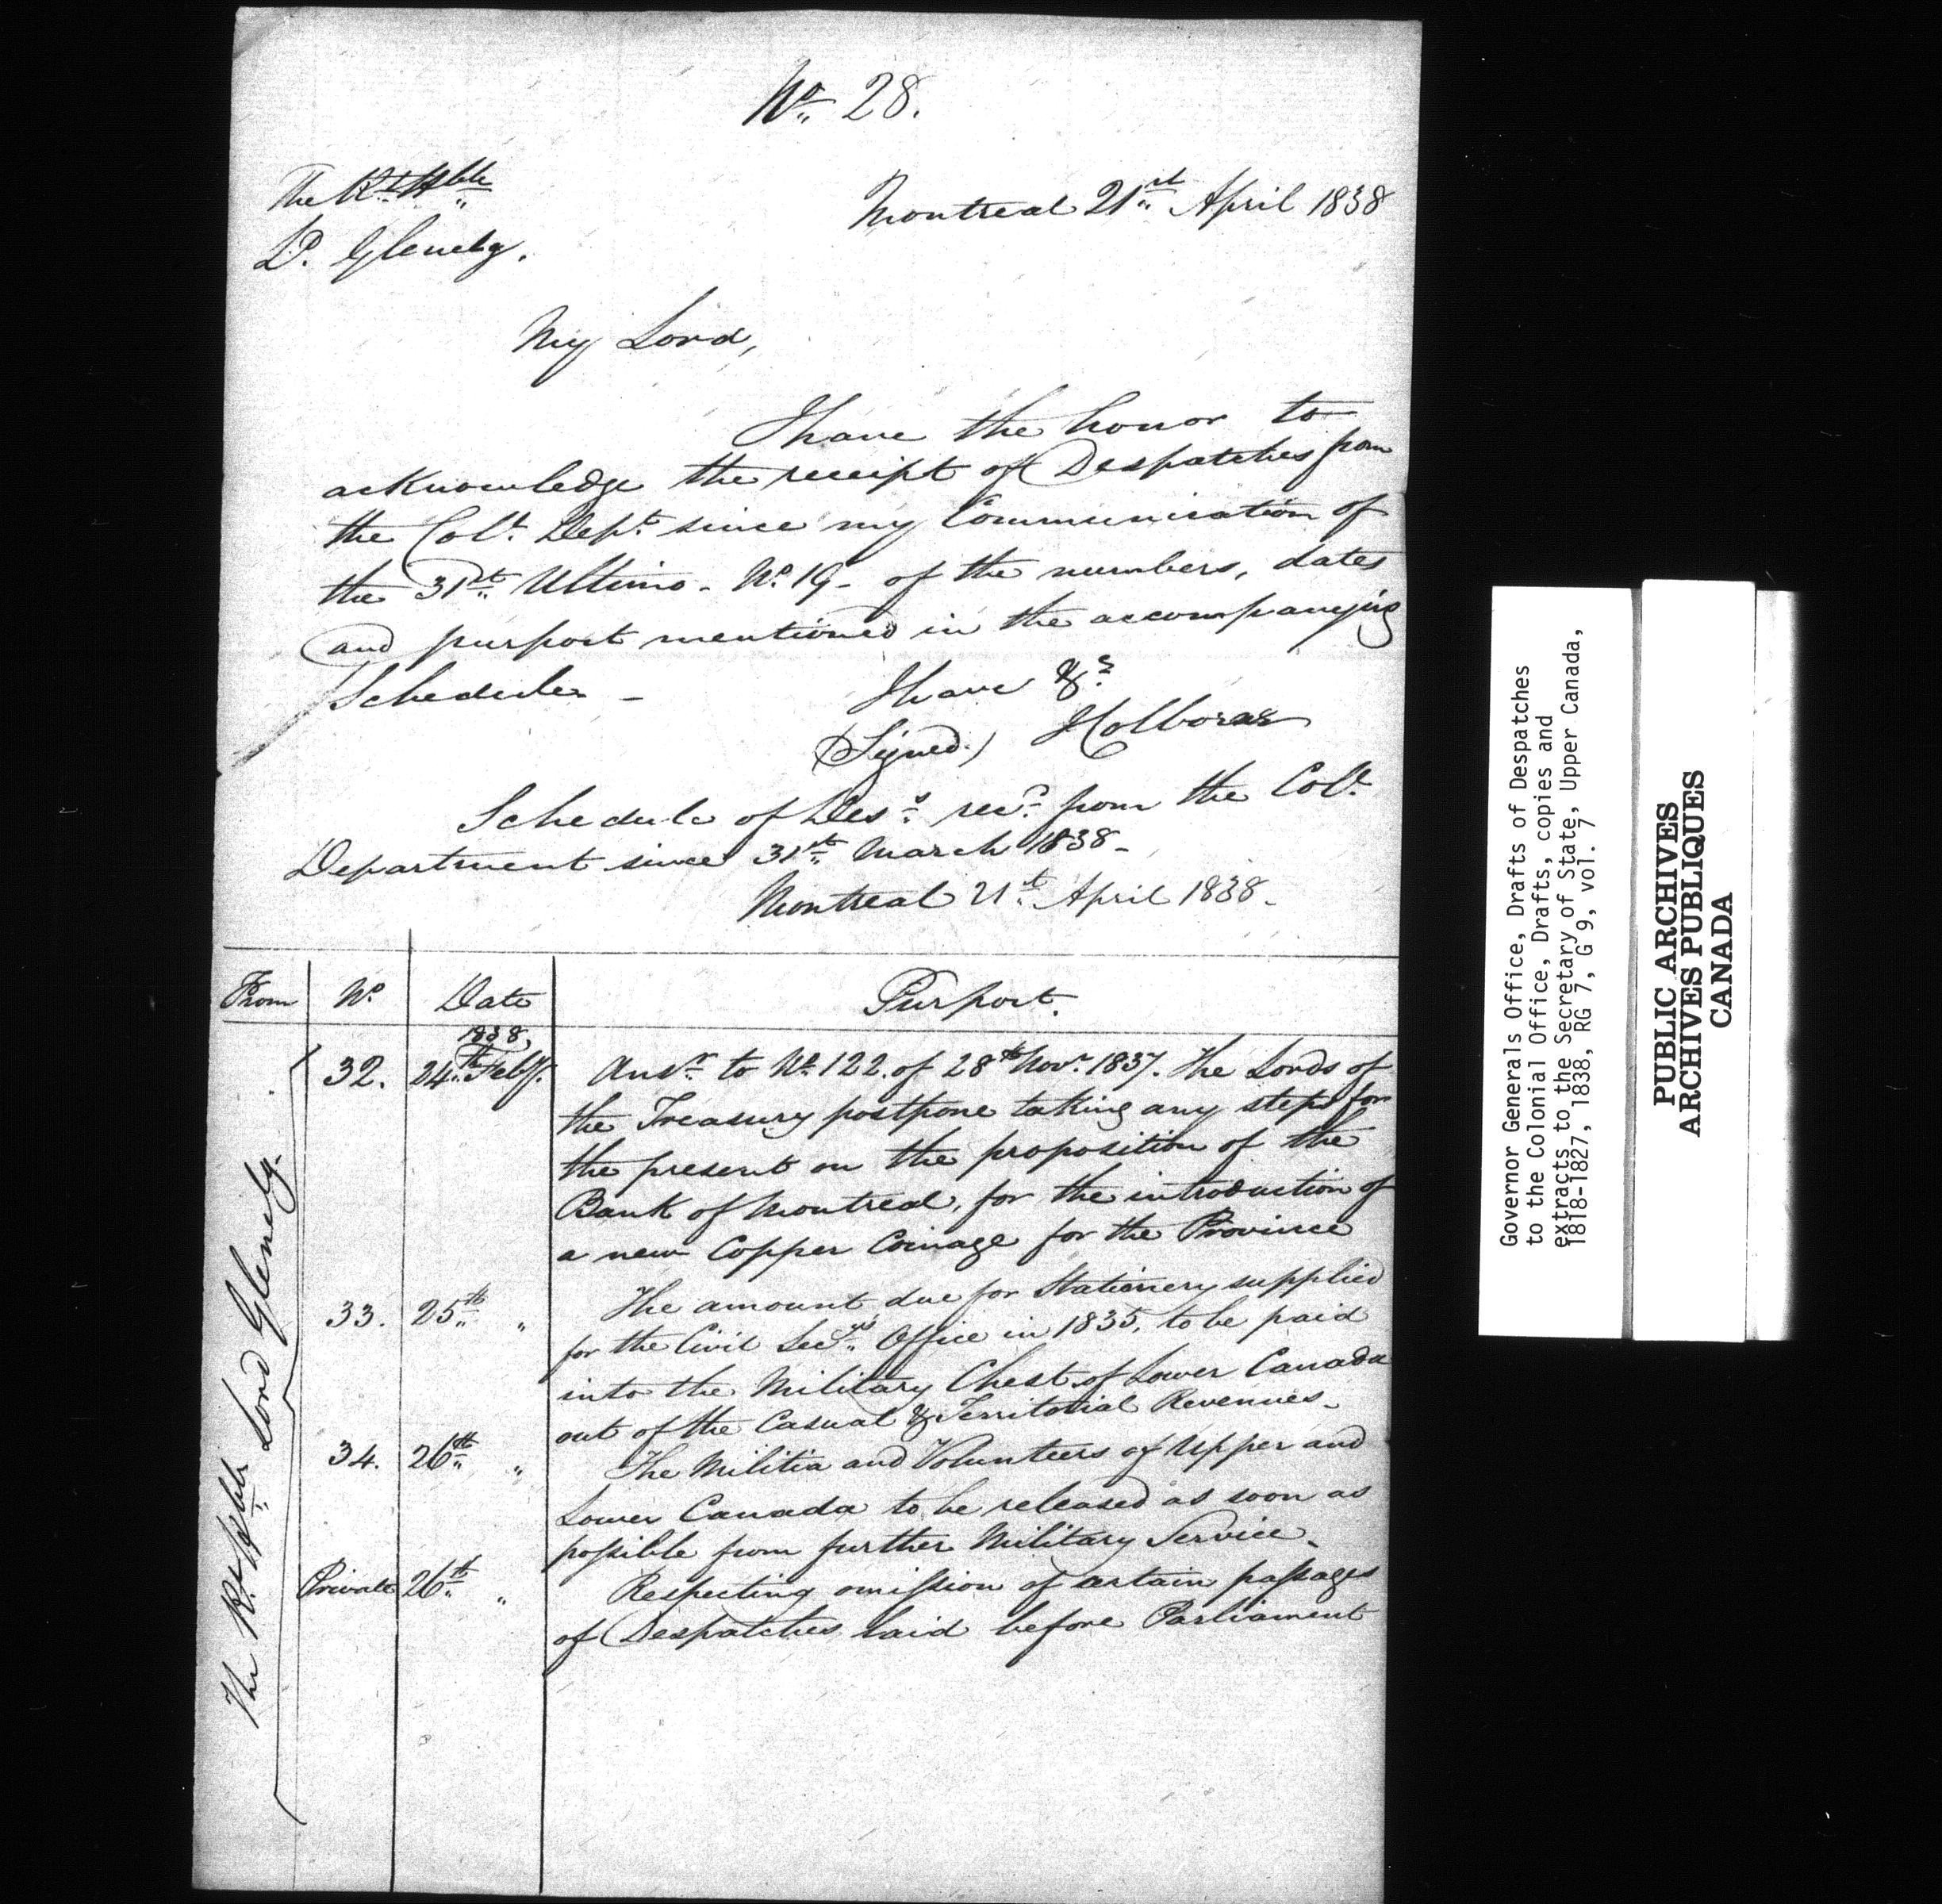 No. 28.
The Rt. Hble
Ld. Glenelg.
Montreal 21st April 1838
My Lord,
I have the honor to
acknowledge the receipt of Despatches from
the Coll. Dept. since my Communication of
the 31st Ultimo - No. 19 - of the numbers, dates
and purport mentioned in the accompanying
Schedule -
I have &c.
(Signed.) J Colborne
Schedule of Des.s recd. from the Coll.
Department since 31st March 1838 -
Montreal 21st April 1838 -
From No. Date Purport.
1838,
32. 24th Feby. Ansr. to No. 122. of 28th Novr. 1837. The Lords of
the Treasury postpone taking any steps for
the present on the proposition of the
Bank of Montreal, for the introduction of
a new Copper Coinage for the Province
33. 25th " The amount due for Stationery supplied
for the Civil Secy's Office in 1835, to be paid
into the Military Chest of Lower Canada
out of the Casual & Territorial Revenues -
34. 26th " The Militia and Volunteers of Upper and
Lower Canada to be released as soon as
possible from further Military Service -
Private 26th " Respecting omission of certain passages
of Despatches laid before Parliament
The Rt. Hble Lord Glenelg.
Governor Generals Office, Drafts of Despatches
to the Colonial Office, Drafts, copies and
extracts to the Secretary of State, Upper Canada,
1818-1827, 1838, RG 7, G 9, vol. 7
PUBLIC ARCHIVES
ARCHIVES PUBLIQUES
CANADA